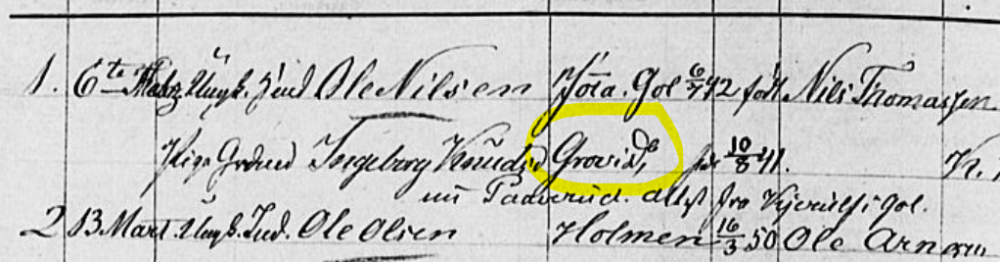 1. 6te Marz Ungk. Ind Ole Nilsen Jóra. Gol 6/7 42 født Nils Thomassen
Pige Grdmd Ingeborg Knudsd Grøv i Ds 10/8 41. K.
nu Paaverud. attest fra Kjerulf i Gol.
2 13 Mart. Ungk. Ind. Ole Olsen Holmen 16/3 50 Ole Arn